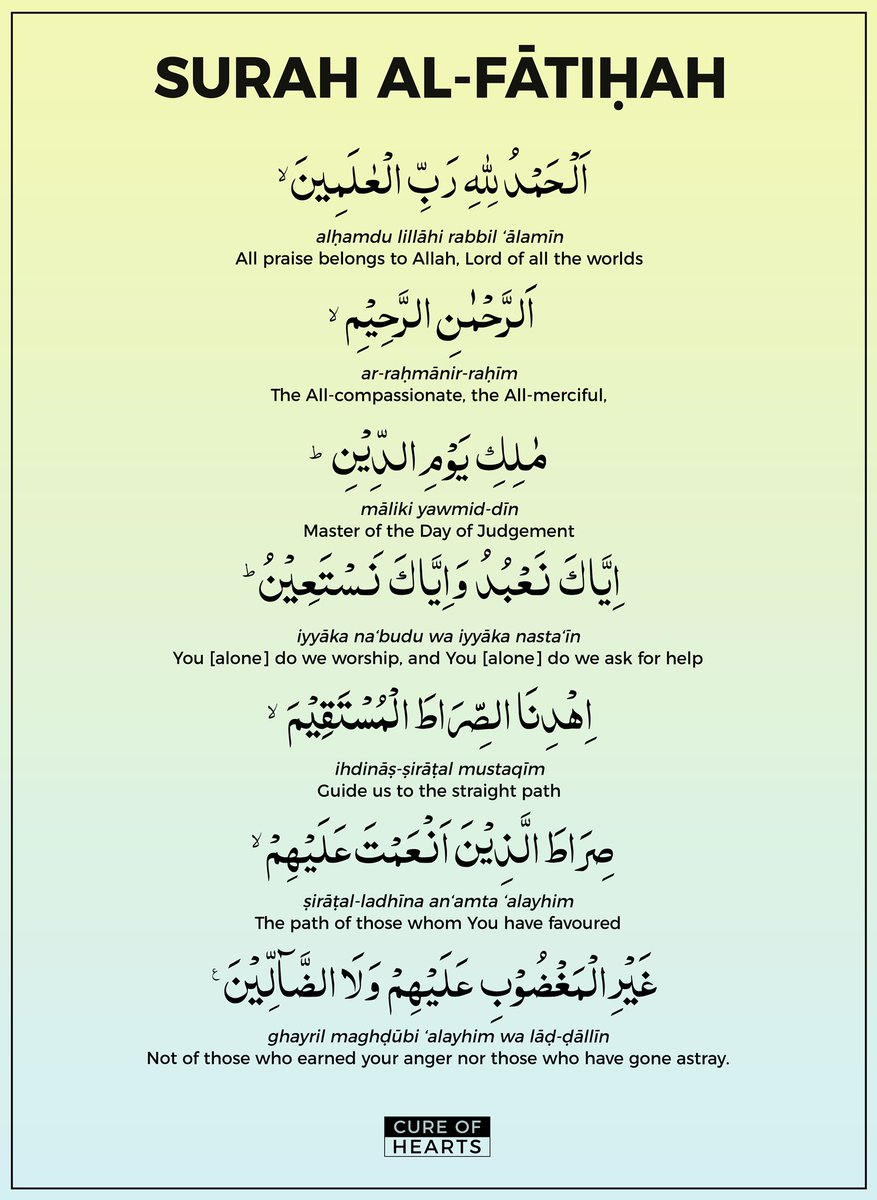 SURAH AL-FĀTIḤAH
اَلْحَمْدُ لِلّٰهِ رَبِّ الْعٰلَمِينَ ۙ
alḥamdu lillāhi rabbil ‘ālamīn
All praise belongs to Allah, Lord of all the worlds
اَلرَّحْمٰنِ الرَّحِيْمِ ۙ
ar-raḥmānir-raḥīm
The All-compassionate, the All-merciful,
مٰلِكِ يَوْمِ الدِّيْنِ ؕ
māliki yawmid-dīn
Master of the Day of Judgement
اِيَّاكَ نَعْبُدُ وَاِيَّاكَ نَسْتَعِيْنُ ؕ
iyyāka na‘budu wa iyyāka nasta‘īn
You [alone] do we worship, and You [alone] do we ask for help
اِهْدِنَا الصِّرَاطَ الْمُسْتَقِيْمَ ۙ
ihdināṣ-ṣirāṭal mustaqīm
Guide us to the straight path
صِرَاطَ الَّذِيْنَ اَنْعَمْتَ عَلَيْهِمْ ۙ
ṣirāṭal-ladhīna an‘amta ‘alayhim
The path of those whom You have favoured
غَيْرِ الْمَغْضُوْبِ عَلَيْهِمْ وَلَا الضَّآلِّيْنَ ع
ghayril maghḍūbi ‘alayhim wa lāḍ-ḍāllīn
Not of those who earned your anger nor those who have gone astray.
CURE OF
HEARTS